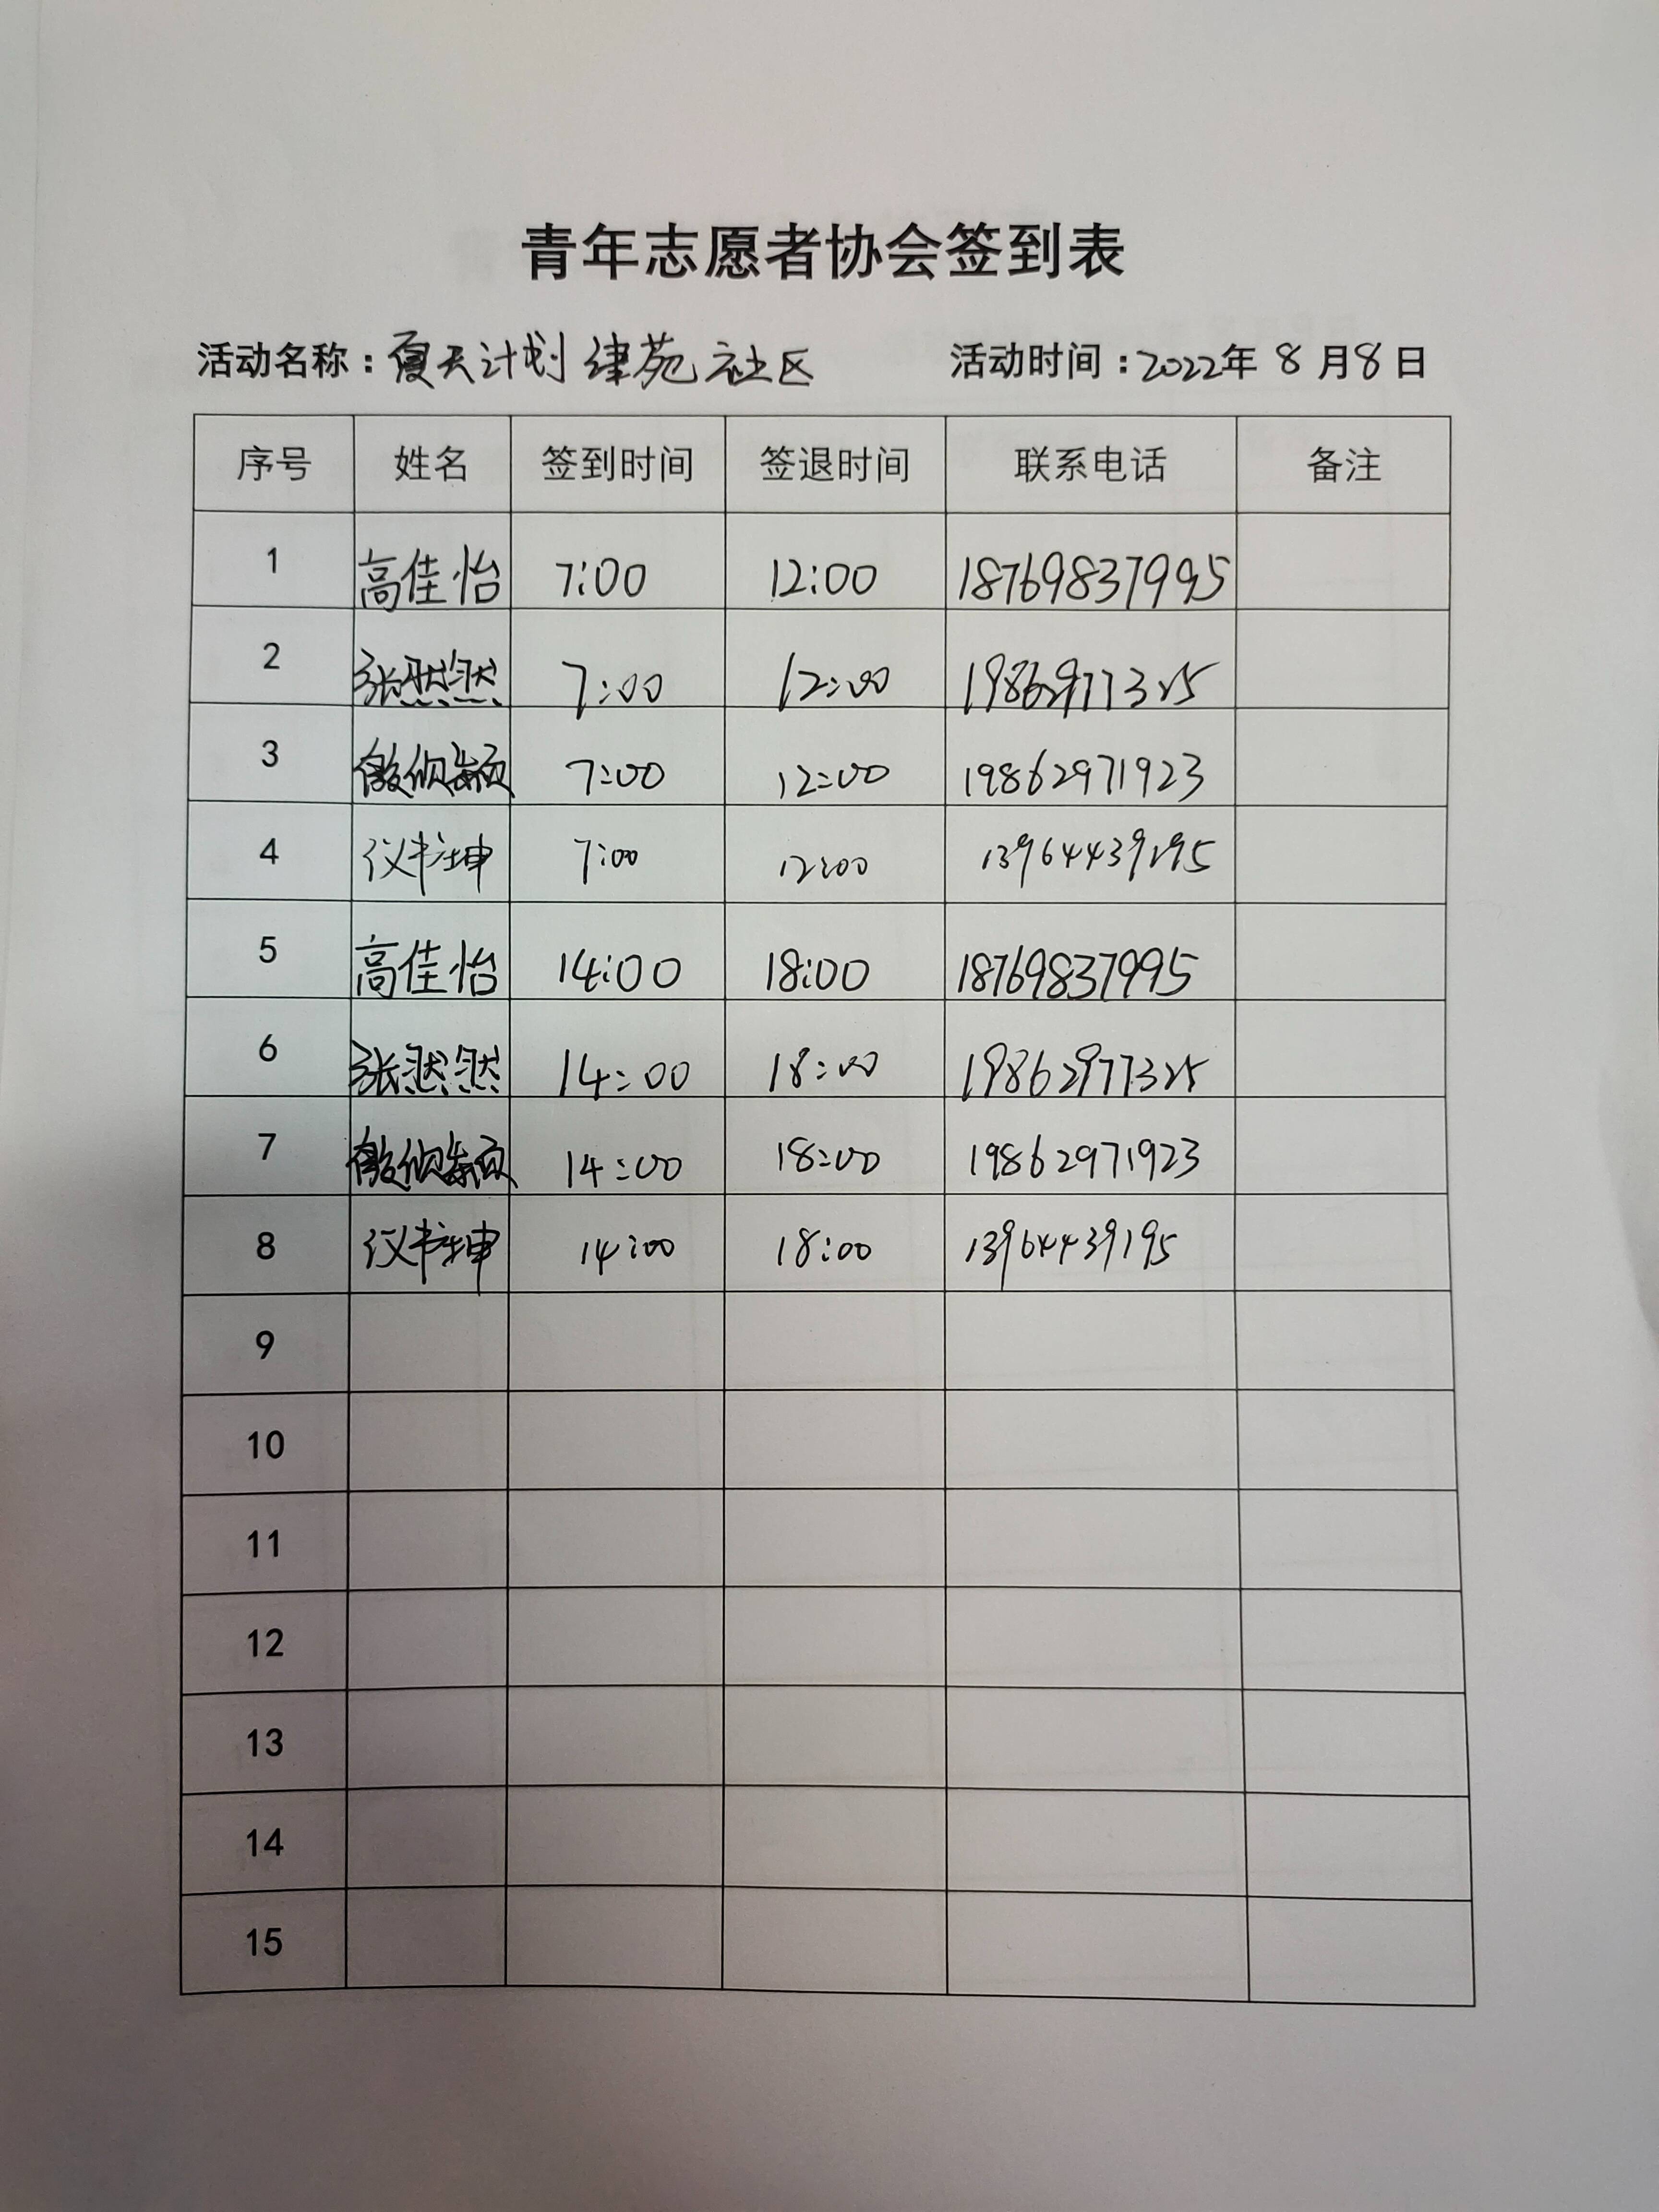 青年志愿者协会签到表
活动名称：夏天计划 律苑社区 活动时间：2022年 8 月 8 日
序号 姓名 签到时间 签退时间 联系电话 备注
1 高佳怡 7:00 12:00 18769837995
2 张然然 7:00 12:00 19862977325
3 7:00 12:00 19862971923
4 仪书坤 7:00 12:00
5 高佳怡 14:00 18:00 18769837995
6 张然然 14:00 18:00 19862977325
7 14:00 18:00 19862971923
8 仪书坤 14:00 18:00 13964439195
9
10
11
12
13
14
15